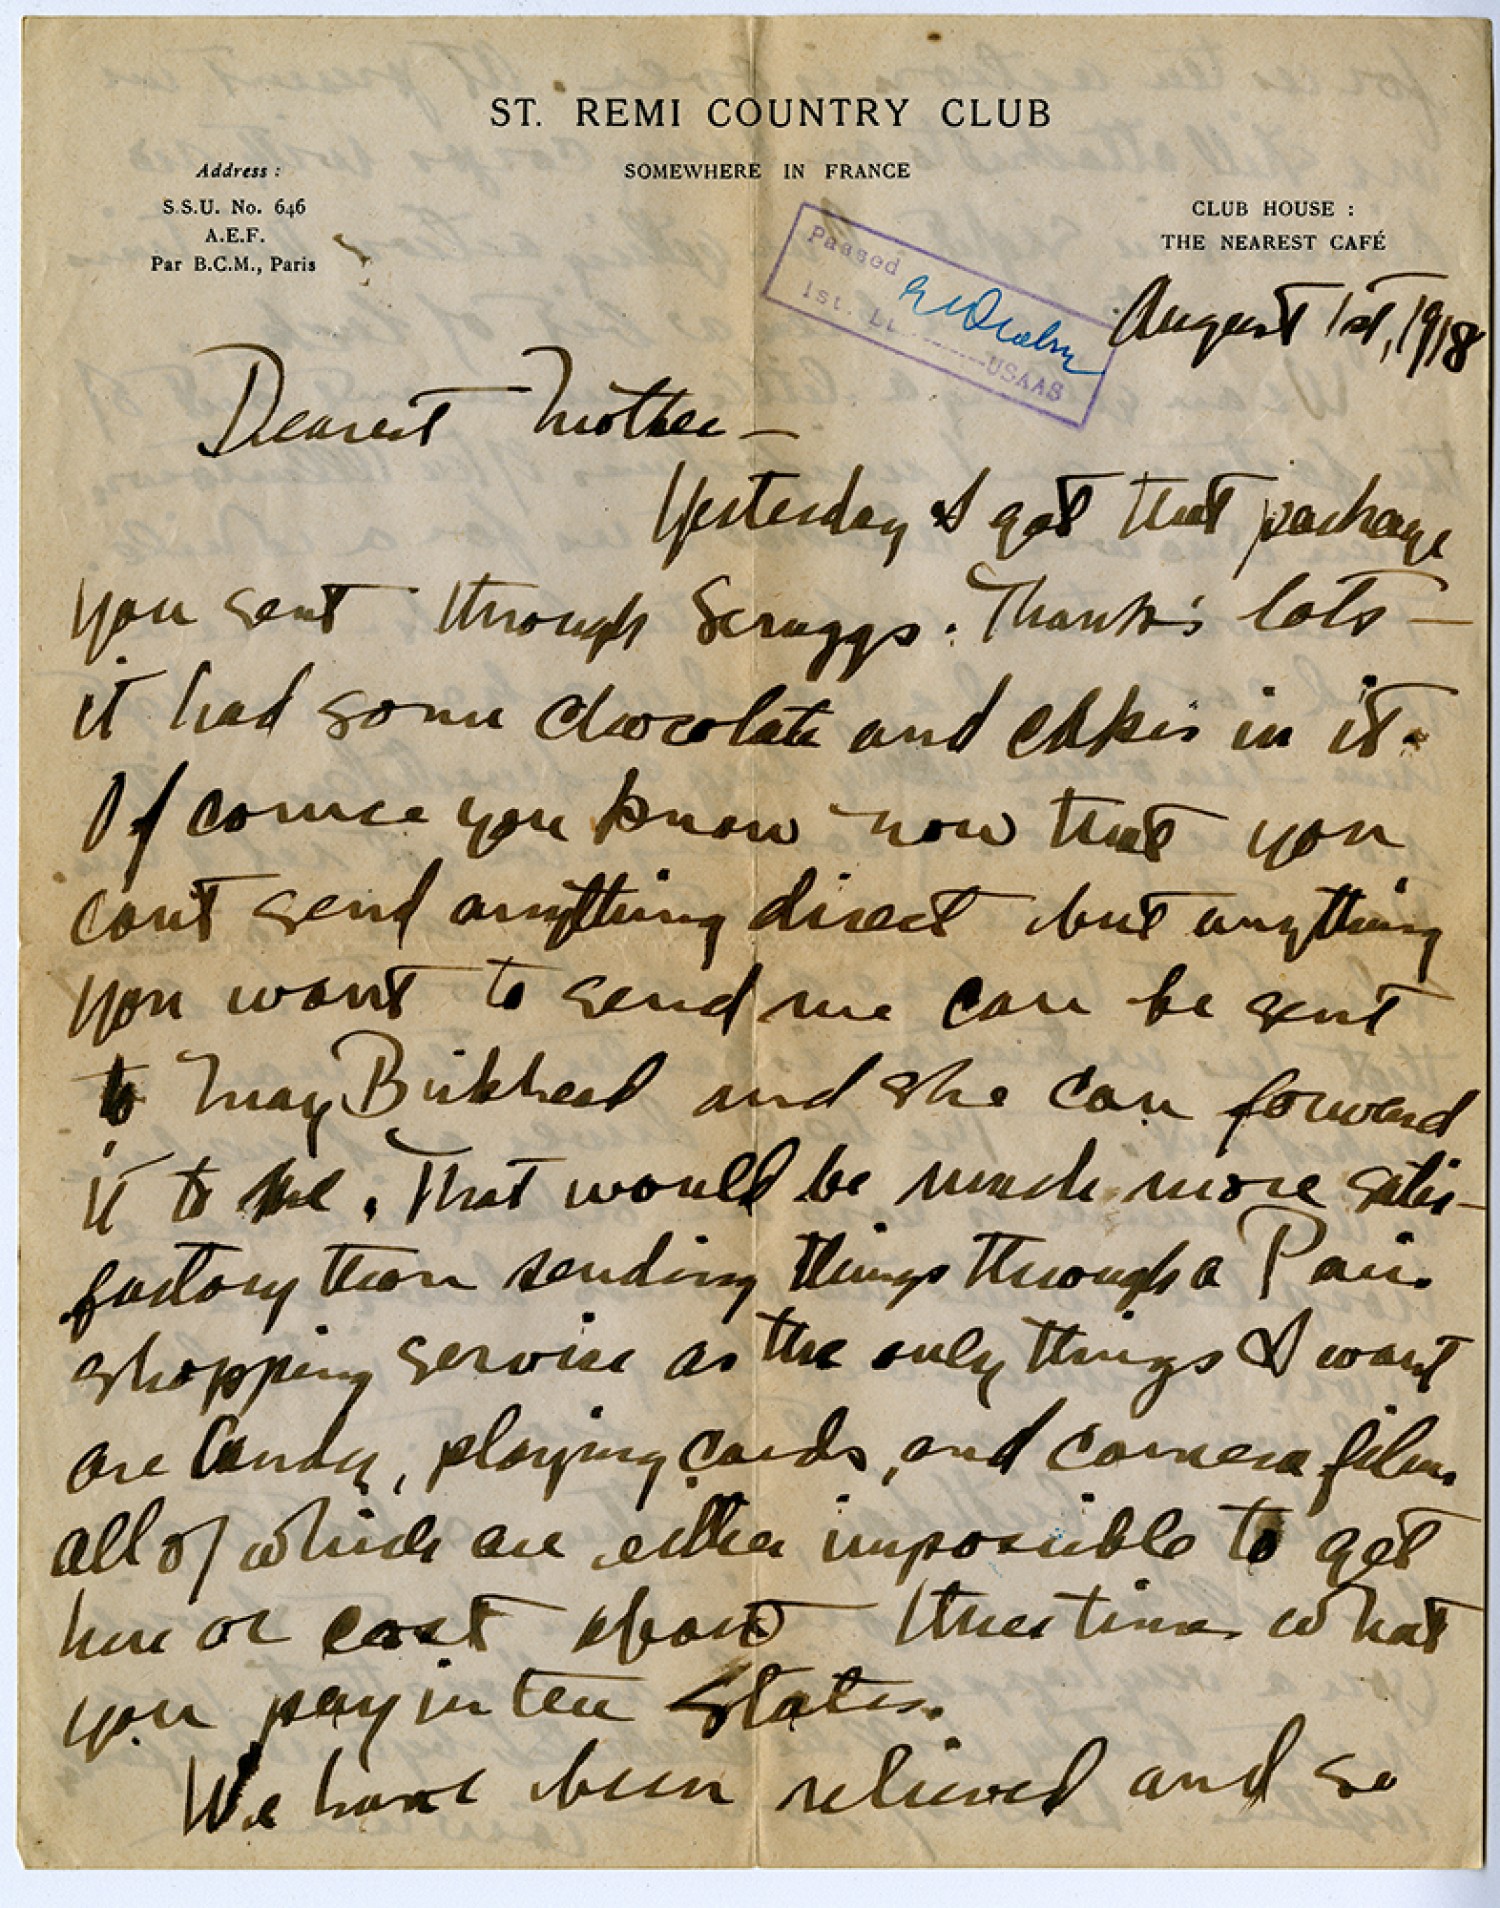 ST. REMI COUNTRY CLUB
SOMEWHERE IN FRANCE
Address :
S.S.U. No. 646
A.E.F.
Par B.C.M., Paris
CLUB HOUSE :
THE NEAREST CAFÉ
Passed
1st. Lt. USAAS
August 1st, 1918
Dearest Mother —
Yesterday I got that package
you sent through Scruggs. Thanks lots —
it had some chocolate and cakes in it.
Of course you know now that you
can't send anything direct but anything
you want to send me can be sent
to May Birkhead and she can forward
it to me. That would be much more satis-
factory than sending things through a Paris
shopping service as the only things I want
are Candy, playing cards, and camera films
all of which are either impossible to get
here or cost about three times what
you pay in the States.
We have been relieved and so